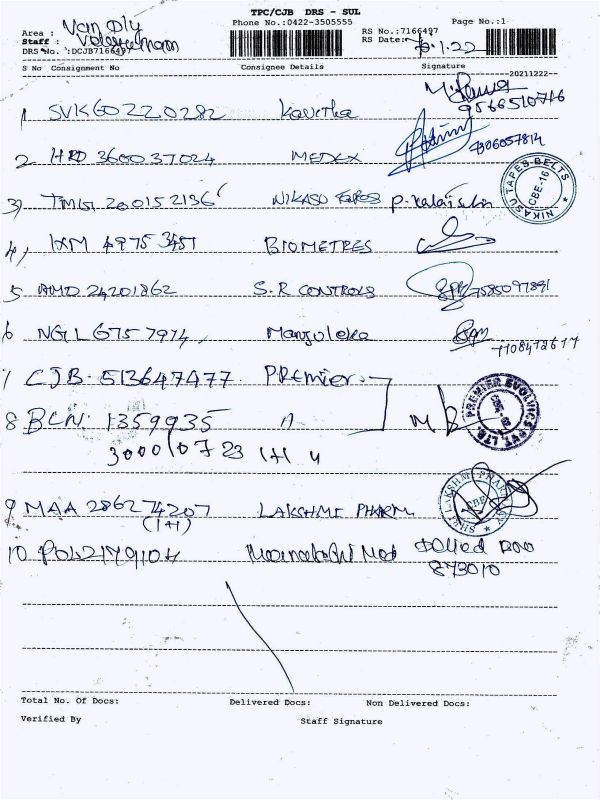 TPC/CJB DRS - SUL
Phone No.:0422-3505555
Page No.:1
Area : Van Dly
Staff :
DRS No. :DCJB7166497
RS No.:7166497
RS Date: .1.22
S No Consignment No Consignee Details Signature
20211222
1 SVK602202 Kavitha 9566510746
2 HRD 360037024 MEDEX 7806057814
3) TMG1 200152136 NIKASU P. Kalai
NIKASU TAPES BELTS CBE-16
4) IXM 49753451 BIOMETRES
5 AMD 24201862 S.R CONTROLS 7585097891
6 NGLL 6757 7974 Manjuleka 7708472617
7 CJB. 513647477 PREMIER
8 BCN. 1359935 "
PREMIER EVOLVICS PVT. LTD.
3000 10723 1+1 4
9 MAA 286274207 LAKSHMI PHARM
SHRI LAKSHMI PHARMACY
(1+1)
10 POL2179104
873010
Total No. Of Docs: Delivered Docs: Non Delivered Docs:
Verified By Staff Signature